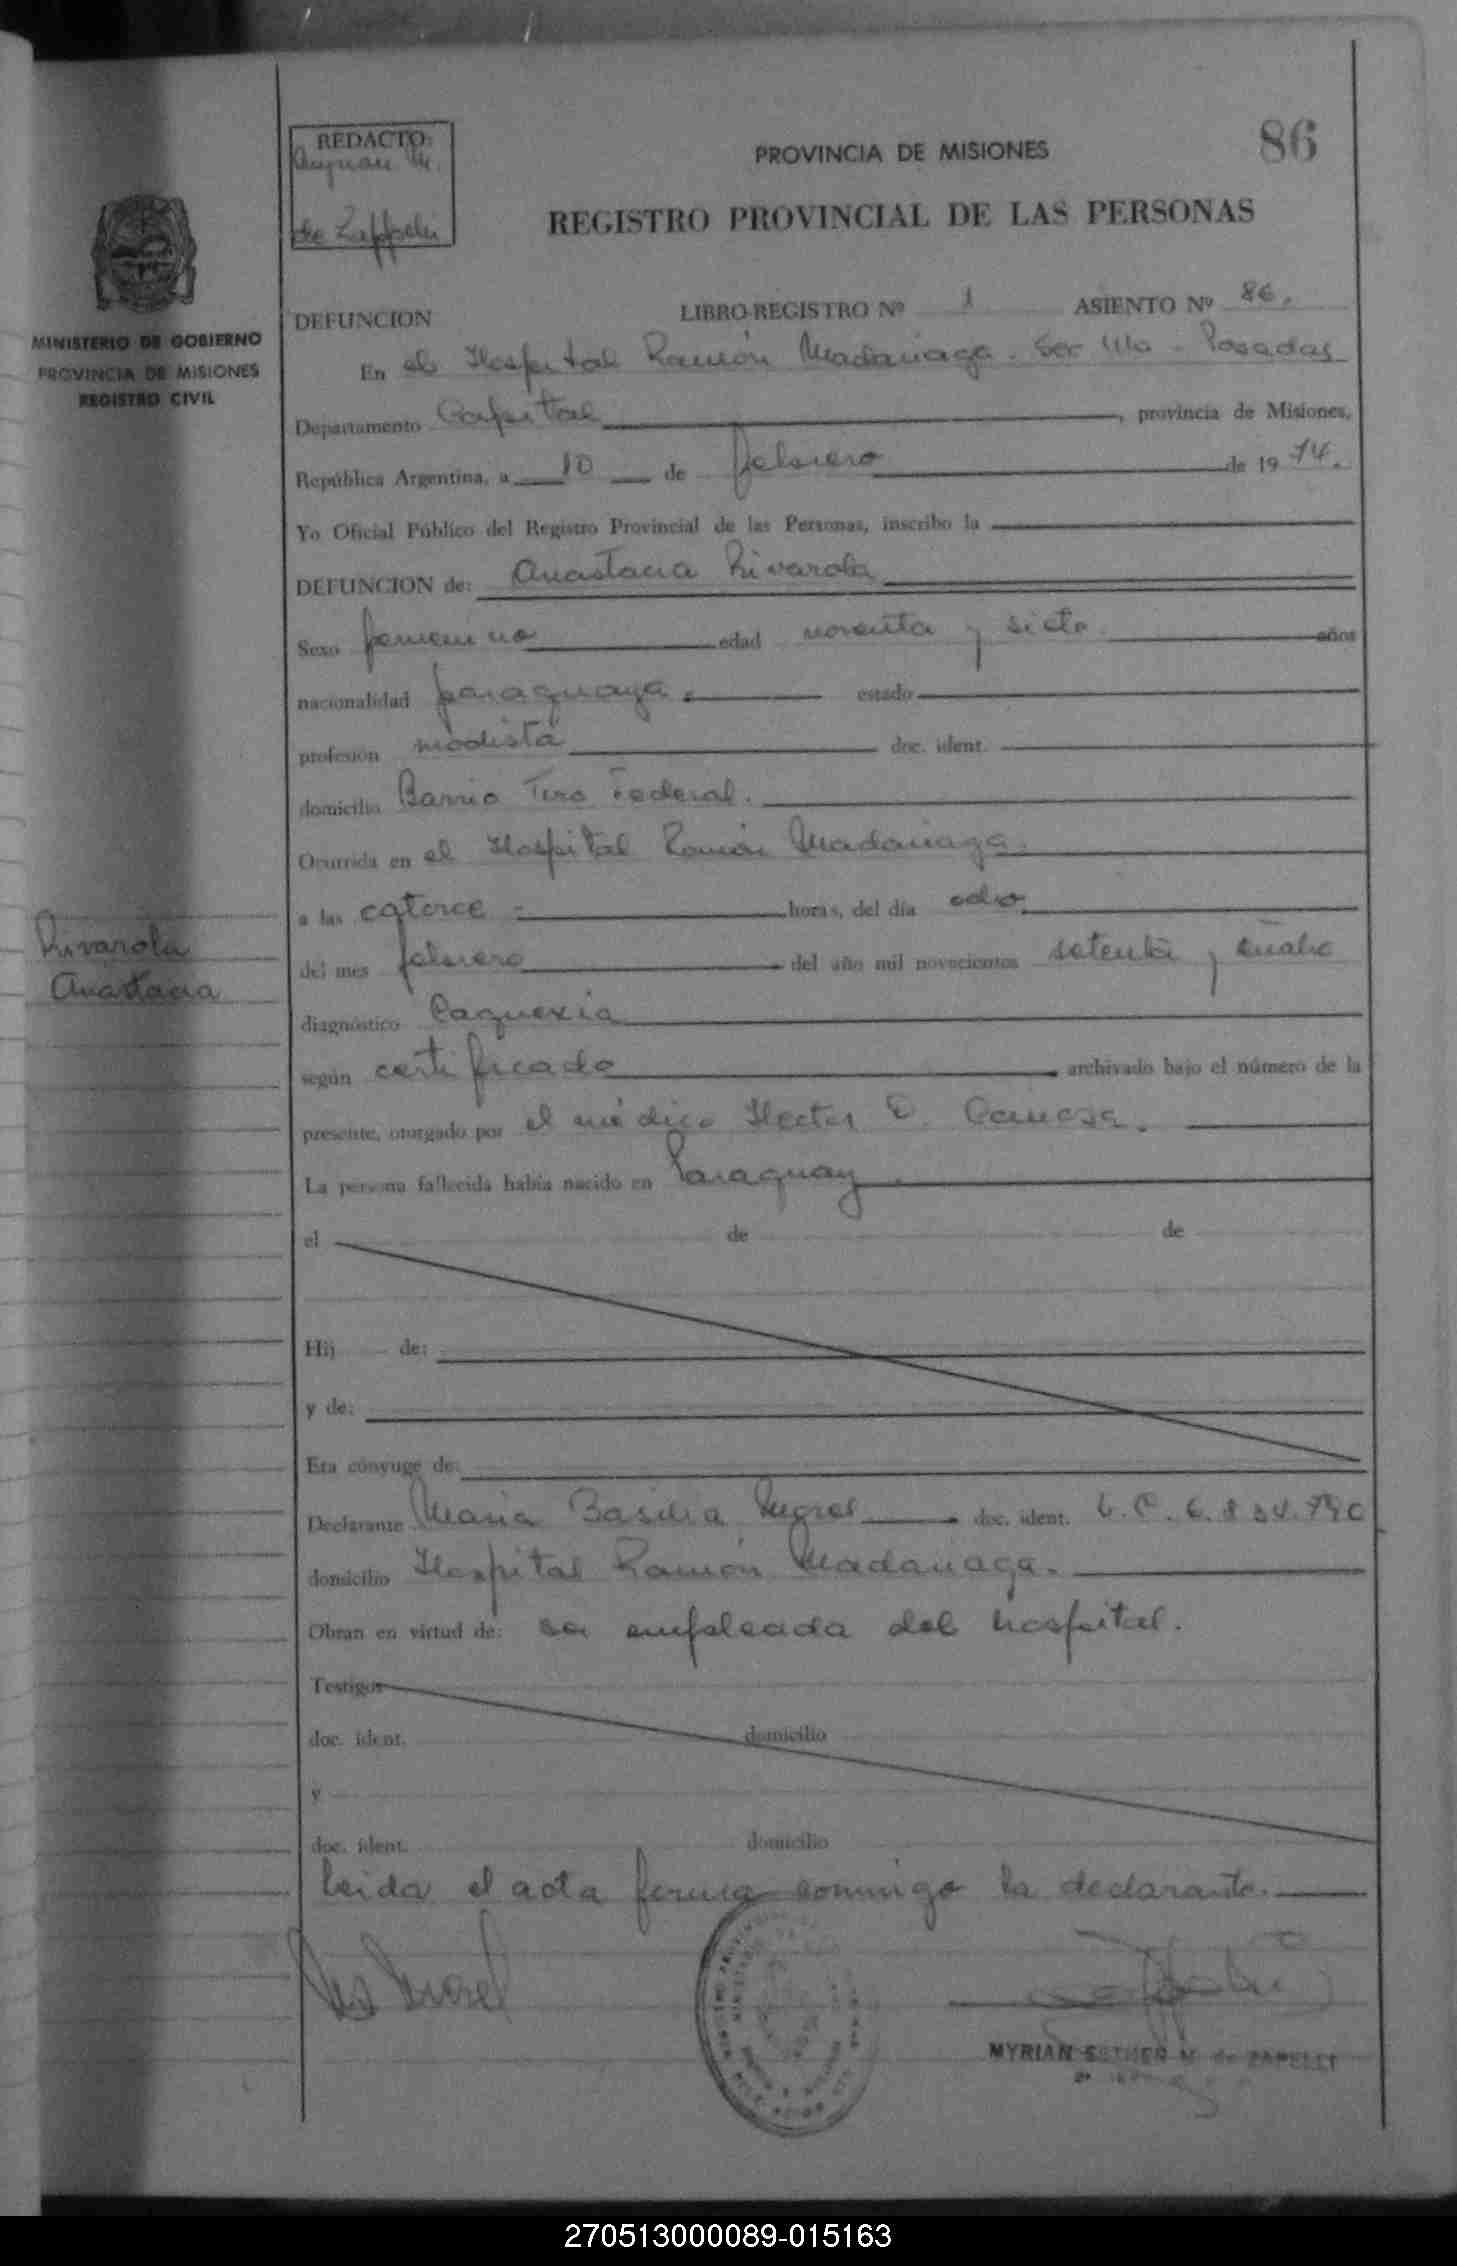 86
REDACTO:
Myrian M.
de Zappelli
PROVINCIA DE MISIONES
REGISTRO PROVINCIAL DE LAS PERSONAS
MINISTERIO DE GOBIERNO
PROVINCIA DE MISIONES
REGISTRO CIVIL
DEFUNCION LIBRO-REGISTRO Nº 1 ASIENTO Nº 86.
En el Hospital Ramón Madariaga. Sec - Posadas
Departamento Capital, provincia de Misiones,
República Argentina, a 10 de febrero de 1974.
Yo Oficial Público del Registro Provincial de las Personas, inscribo la
DEFUNCION de: Anastacia Rivarola
Sexo femenino edad noventa y siete años
nacionalidad paraguaya. estado
profesión modista doc. ident.
domicilio Barrio Tiro Federal.
Ocurrida en el Hospital Ramón Madariaga.
a las catorce - horas, del día ocho
Rivarola
Anastacia
del mes febrero del año mil novecientos setenta y cuatro
diagnóstico Caquexia
según certificado archivado bajo el número de la
presente, otorgado por el médico Hector D.
La persona fallecida había nacido en Paraguay
el de de
Hij de:
y de:
Era cónyuge de:
Declarante María Basilia doc. ident. L.C. 6.
domicilio Hospital Ramón Madariaga.
Obran en virtud de: ser empleada del hospital.
Testigos
doc. ident. domicilio
y
doc. ident. domicilio
Leida el acta firma conmigo la declarante.
MYRIAN ESTHER M. de ZAPELLI
270513000089-015163